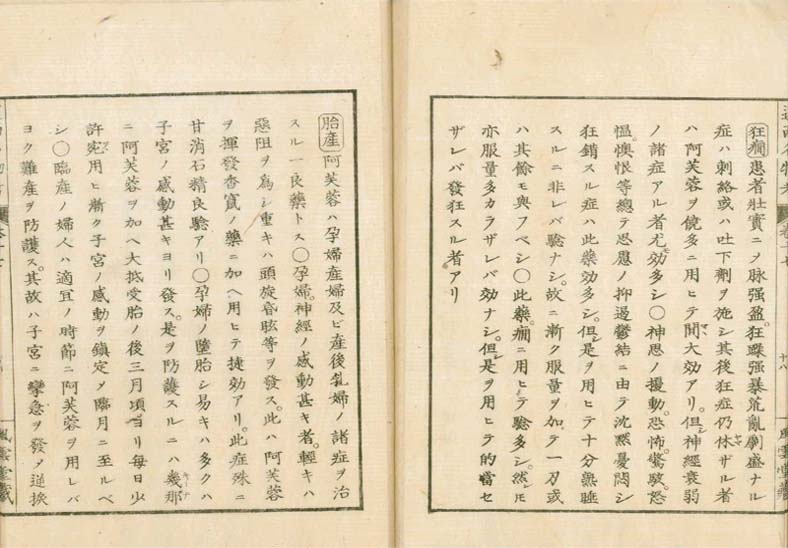 狂癇 患者壯實ニメ脉强盈。狂躁强暴荒亂劇盛ナル
症ハ刺絡或ハ吐下劑ヲ施シ其後狂症仍休ザル者
ハ阿芙蓉ヲ饒多ニ用ヒテ間大効アリ。但神經衰弱
ノ諸症アル者尤効多シ〇神思ノ擾動。恐怖。驚駭。怒
慍。懊恨等總テ思慮ノ抑遏鬱結ニ由テ沈默憂悶シ
狂銷スル症ハ此藥効多シ。但是ヲ用ヒテ十分熟睡
スルニ非レバ驗ナシ。故ニ漸ク服量ヲ加テ一刃或
ハ其餘モ與フベシ〇此藥。癇ニ用ヒテ驗多シ。然𪜈
亦服量多カラザレバ効ナシ。但是ヲ用ヒテ的當セ
ザレバ發狂スル者アリ
十八
風雲堂藏
胎產 阿芙蓉ハ孕婦產婦及ビ產後乳婦ノ諸症ヲ治
スル一良藥トス〇孕婦。神經ノ感動甚キ者。輕キハ
惡阻ヲ為シ重キハ頭旋昏眩等ヲ發ス。此ハ阿芙蓉
ヲ揮發香竄ノ藥ニ加ヘ用ヒテ捷効アリ。此症殊ニ
甘消石精良驗アリ〇孕婦ノ墮胎シ易キハ多クハ
子宮ノ感動甚キヨリ發ス。是ヲ防護スルニハ幾那
ニ阿芙蓉ヲ加ヘ大抵受胎ノ後三月頃ヨリ每日少
許宛用ヒ漸ク子宮ノ感動ヲ鎮定メ臨月ニ至ルベ
シ〇臨產ノ婦人ハ適宜ノ時節ニ阿芙蓉ヲ用レバ
ヨク難產ヲ防護ス。其故ハ子宮ニ攣急ヲ發メ逆挨
風雲堂藏